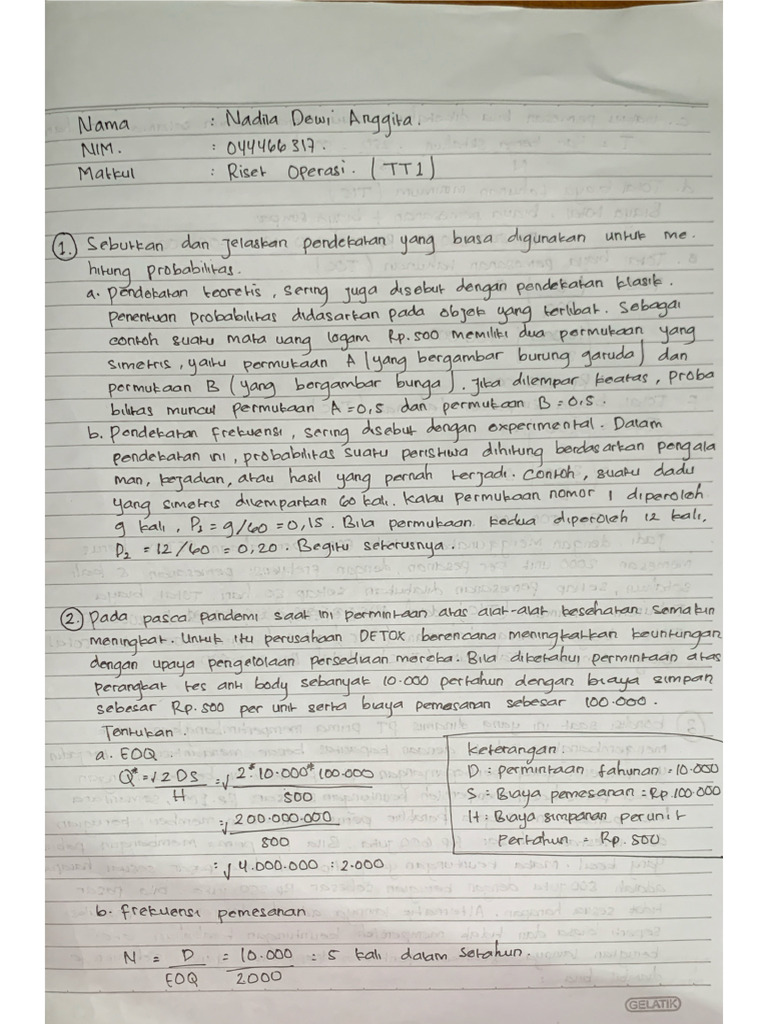 Nama : Nadila Dewi Anggita.
NIM. : 044466317.
Matkul : Riset Operasi. (TT1)
1. Seburkan dan jelaskan pendekatan yang biasa digunakan untuk me.
hitung probabilitas.
a. Pendekatan teoretis, sering juga disebut dengan pendekatan klasik.
penentuan probabilitas didasarkan pada objek yang terlibat. Sebagai
contoh suatu mata uang logam Rp.500 memiliki dua permukaan yang
simetris, yaitu permukaan A (yang bergambar burung garuda) dan
permukaan B (yang bergambar bunga). Jika dilempar keatas, proba
bilitas muncul permukaan A = 0,5 dan permukaan B = 0,5.
b. Pendekatan frekuensi, sering disebut dengan experimental. Dalam
pendekatan ini, probabilitas suatu peristiwa dihitung berdasarkan pengala
man, kejadian, atau hasil yang pernah terjadi. Contoh, suatu dadu
yang simetris dilemparkan 60 kali. Kalau permukaan nomor 1 diperoleh
9 kali, P₁ = 9/60 = 0,15. Bila permukaan kedua diperoleh 12 kali,
P₂ = 12/60 = 0,20. Begitu seterusnya.
2. Pada pasca pandemi saat ini permintaan atas alat-alat kesehatan semakin
meningkat. Untuk itu perusahaan DETOX berencana meningkatkan keuntungan
dengan upaya pengelolaan persediaan mereka. Bila diketahui permintaan atas
perangkat tes anti body sebanyak 10.000 pertahun dengan biaya simpan
sebesar Rp.500 per unit serta biaya pemesanan sebesar 100.000.
Tentukan :
a. EOQ.
Q* = √2DS = √2*10.000*100.000
H 500
= √200.000.000
500
: √4.000.000 : 2.000
Keterangan :
D : permintaan tahunan = 10.000
S : Biaya pemesanan = Rp.100.000
H : Biaya simpanan perunit
Pertahun = Rp.500
b. frekuensi pemesanan
N = D = 10.000 : 5 kali dalam setahun.
EOQ 2000
GELATIK